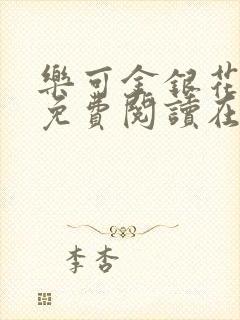 樂可金銀花
免費閱讀在
李杏